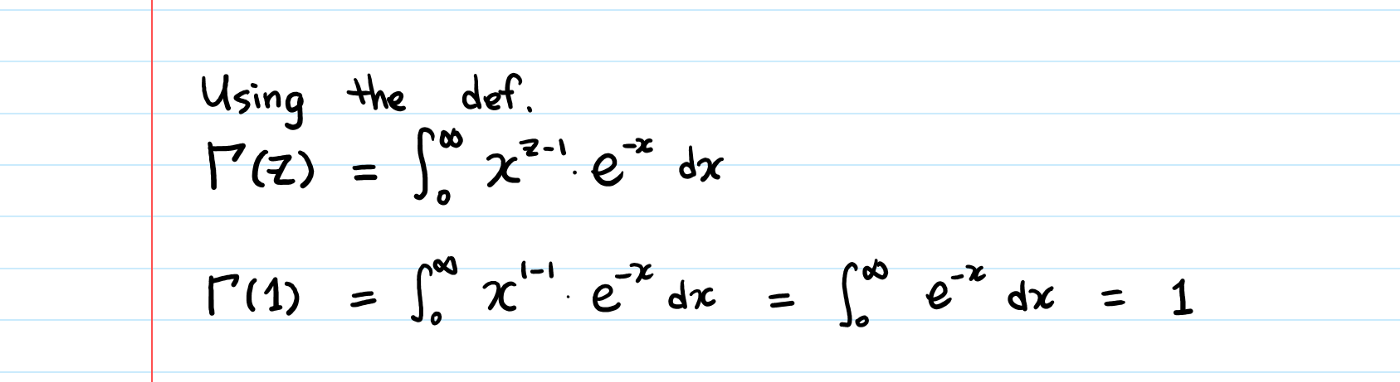 Using the def.
Γ(z) = ∫₀^∞ x^{z-1} · e^{-x} dx
Γ(1) = ∫₀^∞ x^{1-1} · e^{-x} dx = ∫₀^∞ e^{-x} dx = 1